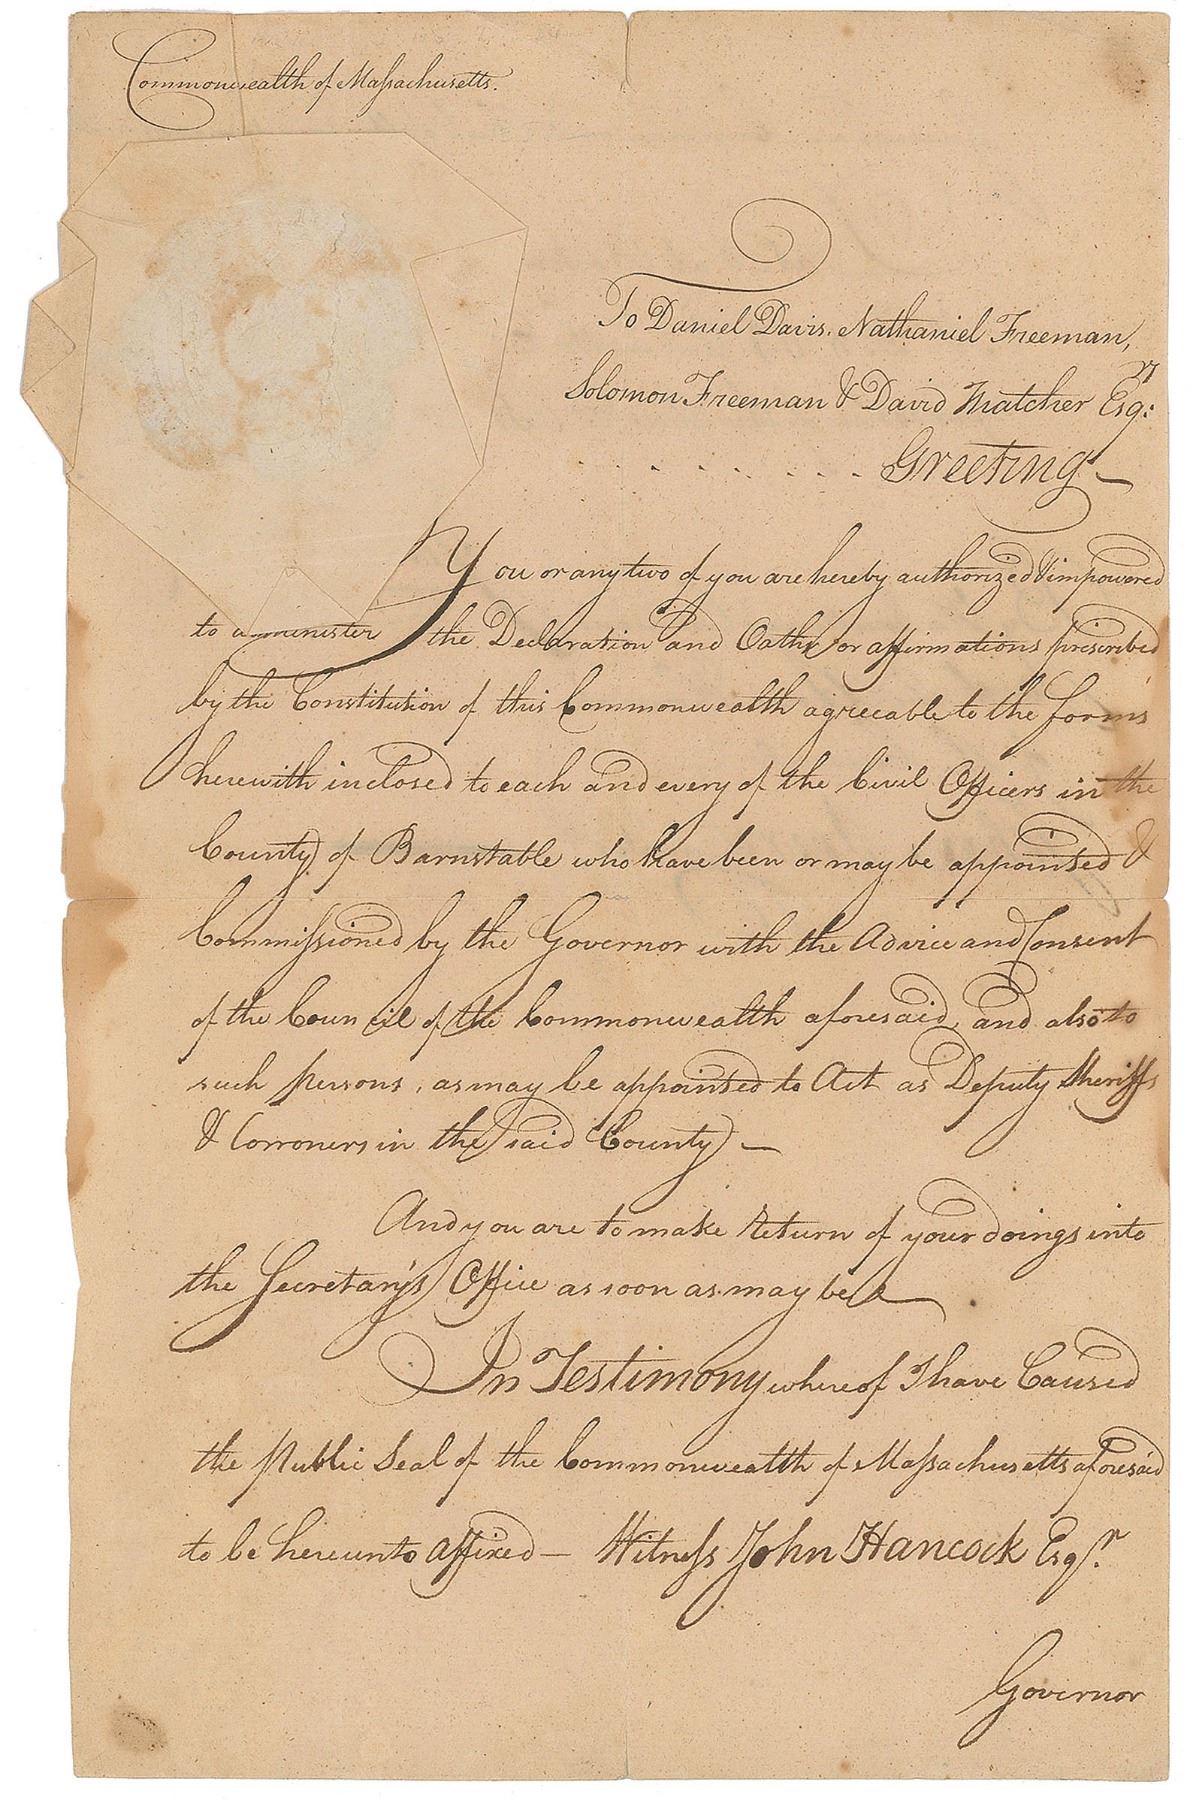 Commonwealth of Massachusetts.
To Daniel Davis. Nathaniel Freeman,
Solomon Freeman & David Thatcher Esqrs:
Greeting —
You or any two of you are hereby authorized & impowered
to administer the Declaration and Oaths or affirmations prescribed
by the Constitution of this Commonwealth agreeable to the forms
herewith inclosed to each and every of the Civil Officers in the
County of Barnstable who have been or may be appointed &
Commissioned by the Governor with the Advice and Consent
of the Council of the Commonwealth aforesaid, and also to
such persons, as may be appointed to Act as Deputy Sheriffs
& Corroners in the said County —
And you are to make Return of your doings into
the Secretary's Office as soon as may be —
In Testimony whereof I have Caused
the Public Seal of the Commonwealth of Massachusetts aforesaid
to be hereunto affixed — Witness John Hancock Esqr.
Governor